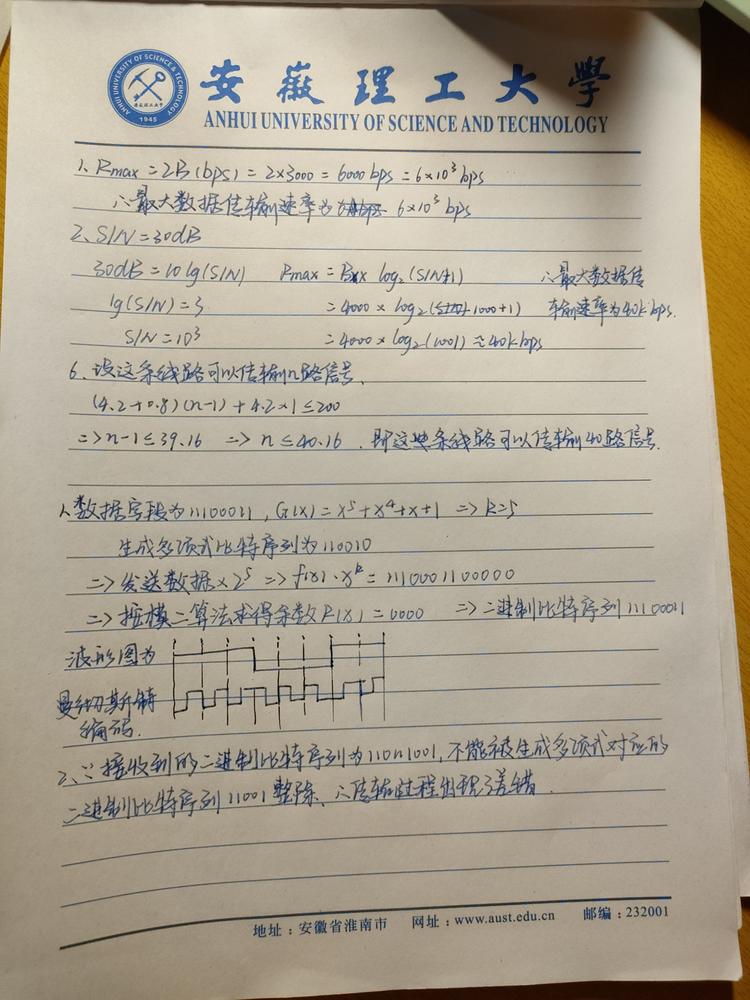 ANHUI UNIVERSITY OF SCIENCE & TECHNOLOGY
安徽理工大学
1945
安徽理工大學
ANHUI UNIVERSITY OF SCIENCE AND TECHNOLOGY
1. Rmax = 2B (bps) = 2×3000 = 6000 bps = 6×10³ bps
∴最大数据传输速率为 6×10³ bps
2. S/N = 30dB
30dB = 10 lg(S/N) Rmax = B× log₂(S/N+1) ∴最大数据传
lg(S/N) = 3 = 4000 × log₂(1000+1) 输速率为40k bps.
S/N = 10³ = 4000 × log₂(1001) ≈ 40k bps
6. 设这条线路可以传输n路信号.
(4.2+0.8)(n-1) + 4.2×1 ≤ 200
=> n-1 ≤ 39.16 => n ≤ 40.16 . 即这些条线路可以传输40路信号.
1. 数据字段为11100011, G(X) = X⁵+X⁴+X+1 => k=5
生成多项式比特序列为110010
=> 发送数据×2⁵ => f(x)·xᵏ = 1110001100000
=> 按模二算法求得余数R(X) = 0000 => 二进制比特序列11100011
波形图为
曼彻斯特
编码.
2. ∵接收到的二进制比特序列为110111001, 不能被生成多项式对应的
二进制比特序列11001整除. ∴传输过程出现了差错.
地址：安徽省淮南市 网址：www.aust.edu.cn 邮编：232001